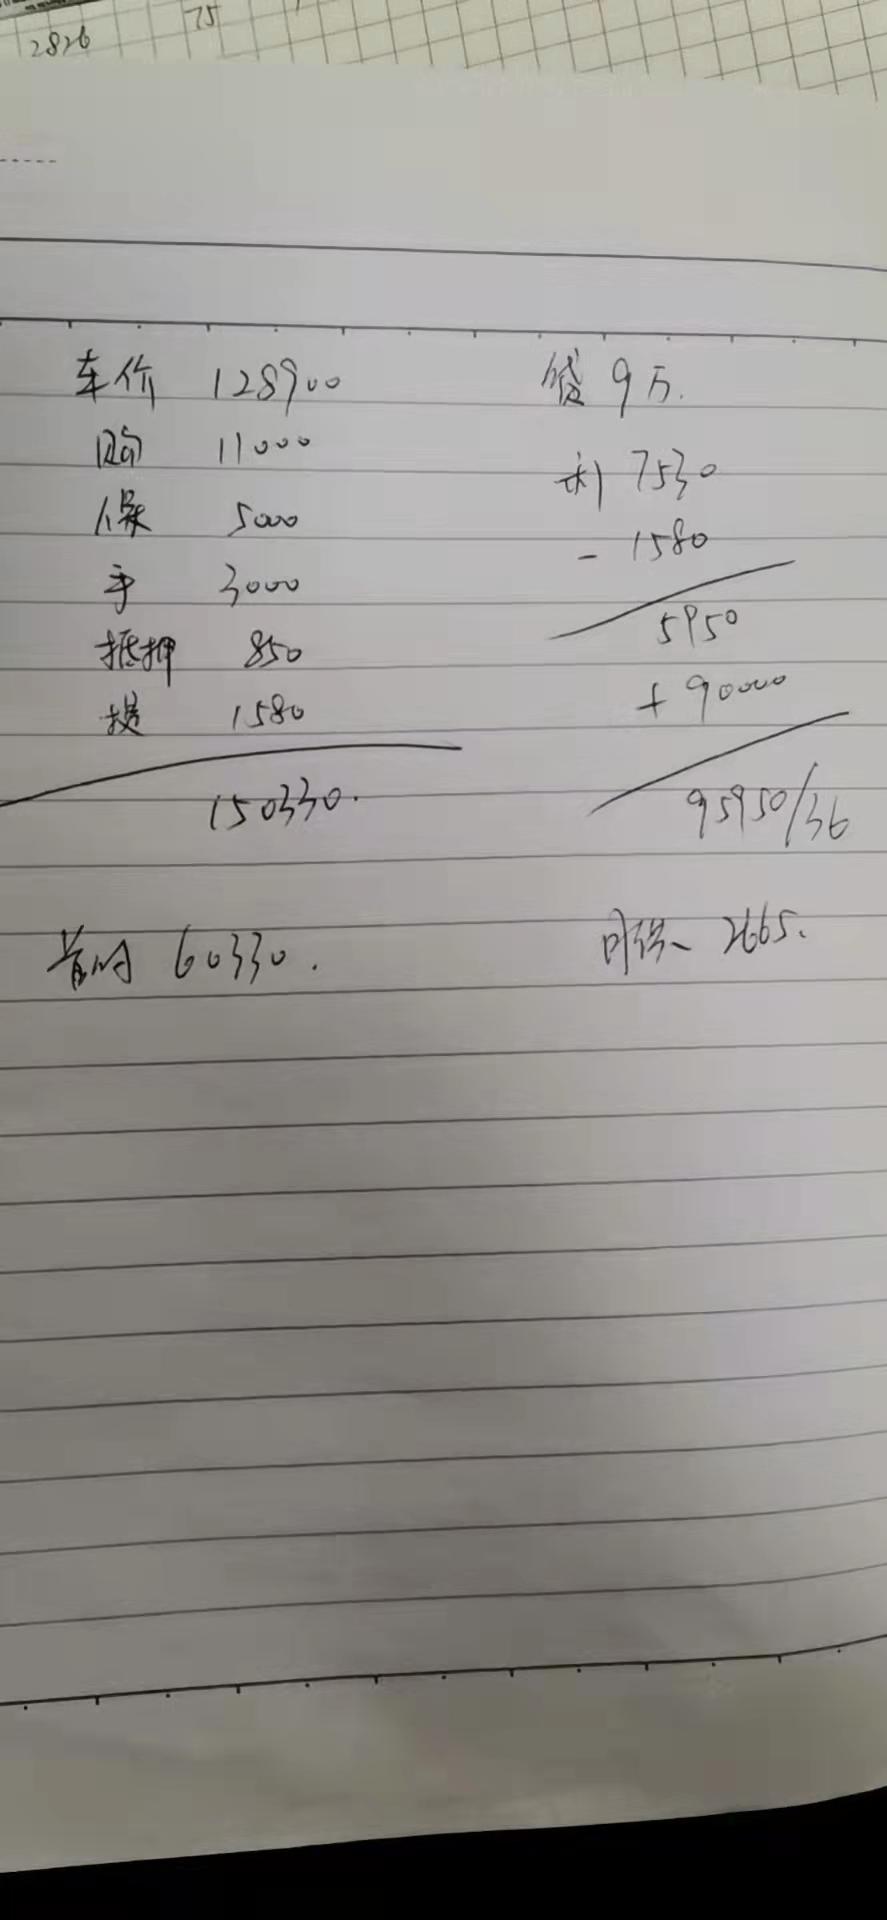 2826
75
车价 128900
购 11000
保 5000
手 3000
抵押 850
损 1580
150330.
首付 60330.
贷 9万.
利 7530
- 1580
5950
+ 90000
95950/36
月供 2665.